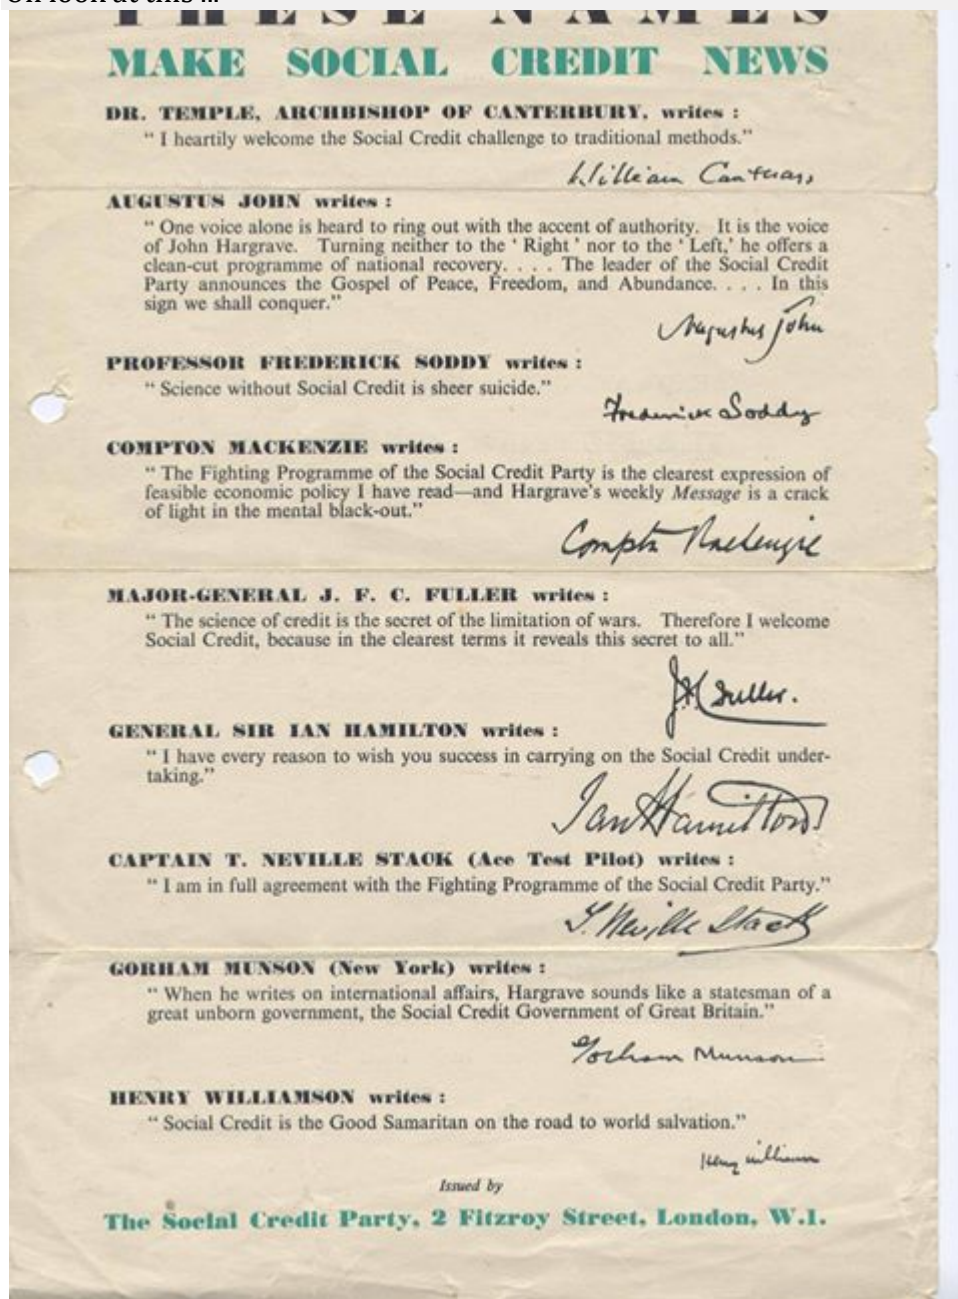 THESE NAMES
MAKE SOCIAL CREDIT NEWS
DR. TEMPLE, ARCHBISHOP OF CANTERBURY, writes :
“ I heartily welcome the Social Credit challenge to traditional methods.”
William Cantuar,
AUGUSTUS JOHN writes :
“ One voice alone is heard to ring out with the accent of authority. It is the voice
of John Hargrave. Turning neither to the ‘ Right ’ nor to the ‘ Left,’ he offers a
clean-cut programme of national recovery. . . . The leader of the Social Credit
Party announces the Gospel of Peace, Freedom, and Abundance. . . . In this
sign we shall conquer.”
Augustus John
PROFESSOR FREDERICK SODDY writes :
“ Science without Social Credit is sheer suicide.”
Frederick Soddy
COMPTON MACKENZIE writes :
“ The Fighting Programme of the Social Credit Party is the clearest expression of
feasible economic policy I have read—and Hargrave's weekly Message is a crack
of light in the mental black-out.”
Compton Mackenzie
MAJOR-GENERAL J. F. C. FULLER writes :
“ The science of credit is the secret of the limitation of wars. Therefore I welcome
Social Credit, because in the clearest terms it reveals this secret to all.”
Fuller.
GENERAL SIR IAN HAMILTON writes :
“ I have every reason to wish you success in carrying on the Social Credit under-
taking.”
Ian Hamilton
CAPTAIN T. NEVILLE STACK (Ace Test Pilot) writes :
“ I am in full agreement with the Fighting Programme of the Social Credit Party.”
T. Neville Stack
GORHAM MUNSON (New York) writes :
“ When he writes on international affairs, Hargrave sounds like a statesman of a
great unborn government, the Social Credit Government of Great Britain.”
Gorham Munson
HENRY WILLIAMSON writes :
“ Social Credit is the Good Samaritan on the road to world salvation.”
Henry Williamson
Issued by
The Social Credit Party, 2 Fitzroy Street, London, W.1.